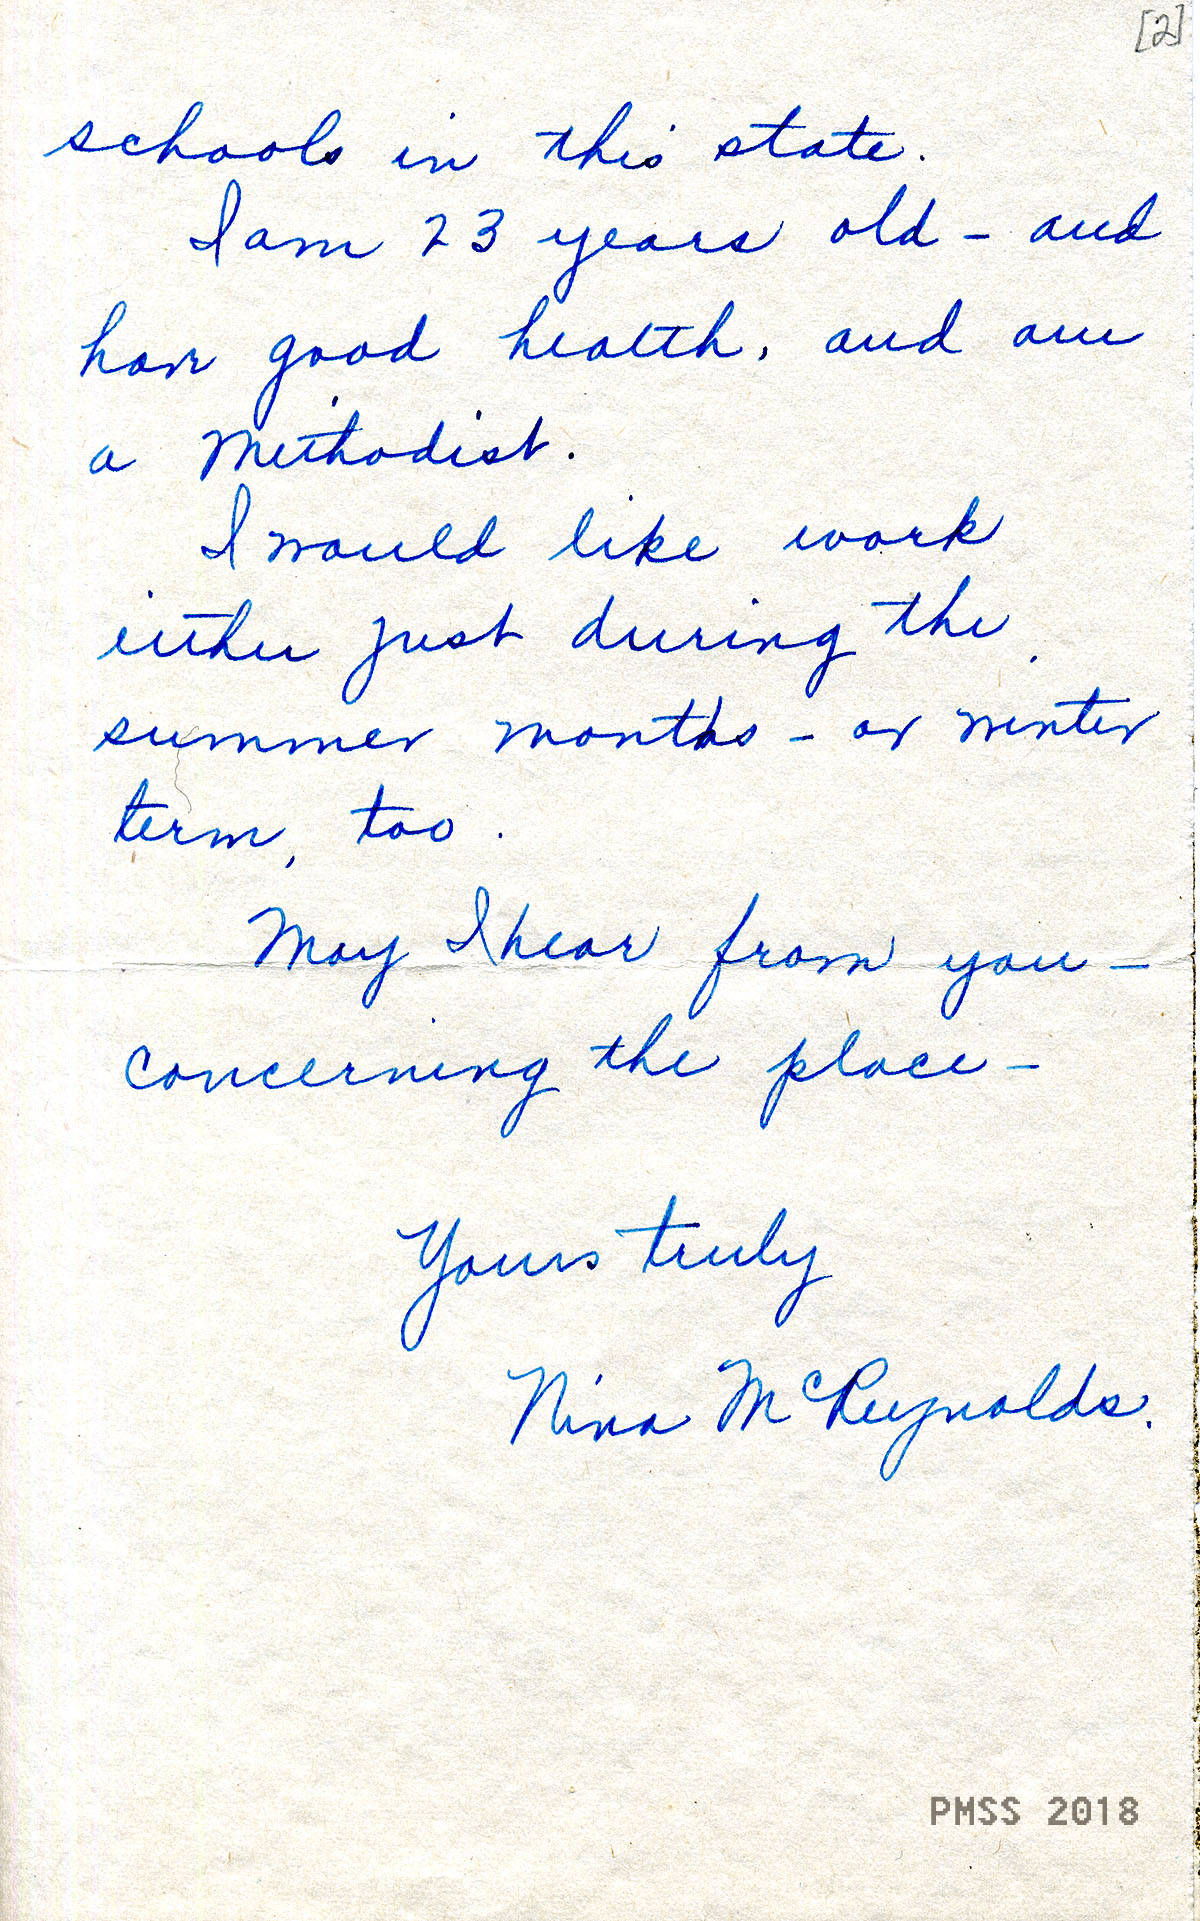 [2]
schools in this state.
I am 23 years old - and
have good health, and am
a Methodist.
I would like work
either just during the
summer months - or winter
term, too.
May I hear from you -
concerning the place -
Yours truly
Nina McReynolds.
PMSS 2018